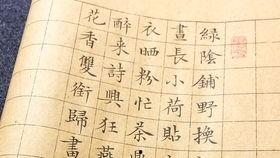 綠陰鋪野換
晝長小荷貼
衣晒粉忙茶鼎
醉来詩興狂燕
花香雙銜歸畫